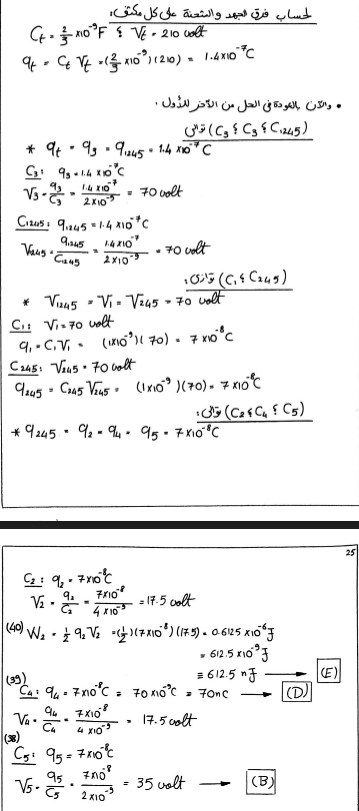 لحساب فرق الجهد والشحنة على كل مكثف:
Ct = 2/3 ×10⁻⁹F ؛ Vt = 210 volt
qt = Ct Vt = (2/3 ×10⁻⁹)(210) = 1.4×10⁻⁷C
• والآن بالعودة في الحل من الآخر للأول.
(C3 ؛ C3 ؛ C1245) توالي
* qt = q3 = q1245 = 1.4×10⁻⁷C
C3: q3 = 1.4×10⁻⁷C
V3 = q3/C3 = 1.4×10⁻⁷/2×10⁻⁹ = 70 volt
C1245: q1245 = 1.4×10⁻⁷C
V1245 = q1245/C1245 = 1.4×10⁻⁷/2×10⁻⁹ = 70 volt
(C1 ؛ C245) توازي:
* V1245 = V1 = V245 = 70 volt
C1: V1 = 70 volt
q1 = C1V1 = (1×10⁻⁹)(70) = 7×10⁻⁸C
C245: V245 = 70 volt
q245 = C245 V245 = (1×10⁻⁹)(70) = 7×10⁻⁸C
(C2 ؛ C4 ؛ C5) توالي:
* q245 = q2 = q4 = q5 = 7×10⁻⁸C
25
C2: q2 = 7×10⁻⁸C
V2 = q2/C2 = 7×10⁻⁸/4×10⁻⁹ = 17.5 volt
(40) W2 = 1/2 q2 V2 = (1/2)(7×10⁻⁸)(17.5) = 0.6125×10⁻⁶J
= 612.5×10⁻⁹J
= 612.5 nJ → (E)
(39)
C4: q4 = 7×10⁻⁸C = 70×10⁻⁹C = 70nC → (D)
V4 = q4/C4 = 7×10⁻⁸/4×10⁻⁹ = 17.5 volt
(38)
C5: q5 = 7×10⁻⁸C
V5 = q5/C5 = 7×10⁻⁸/2×10⁻⁹ = 35 volt → (B)